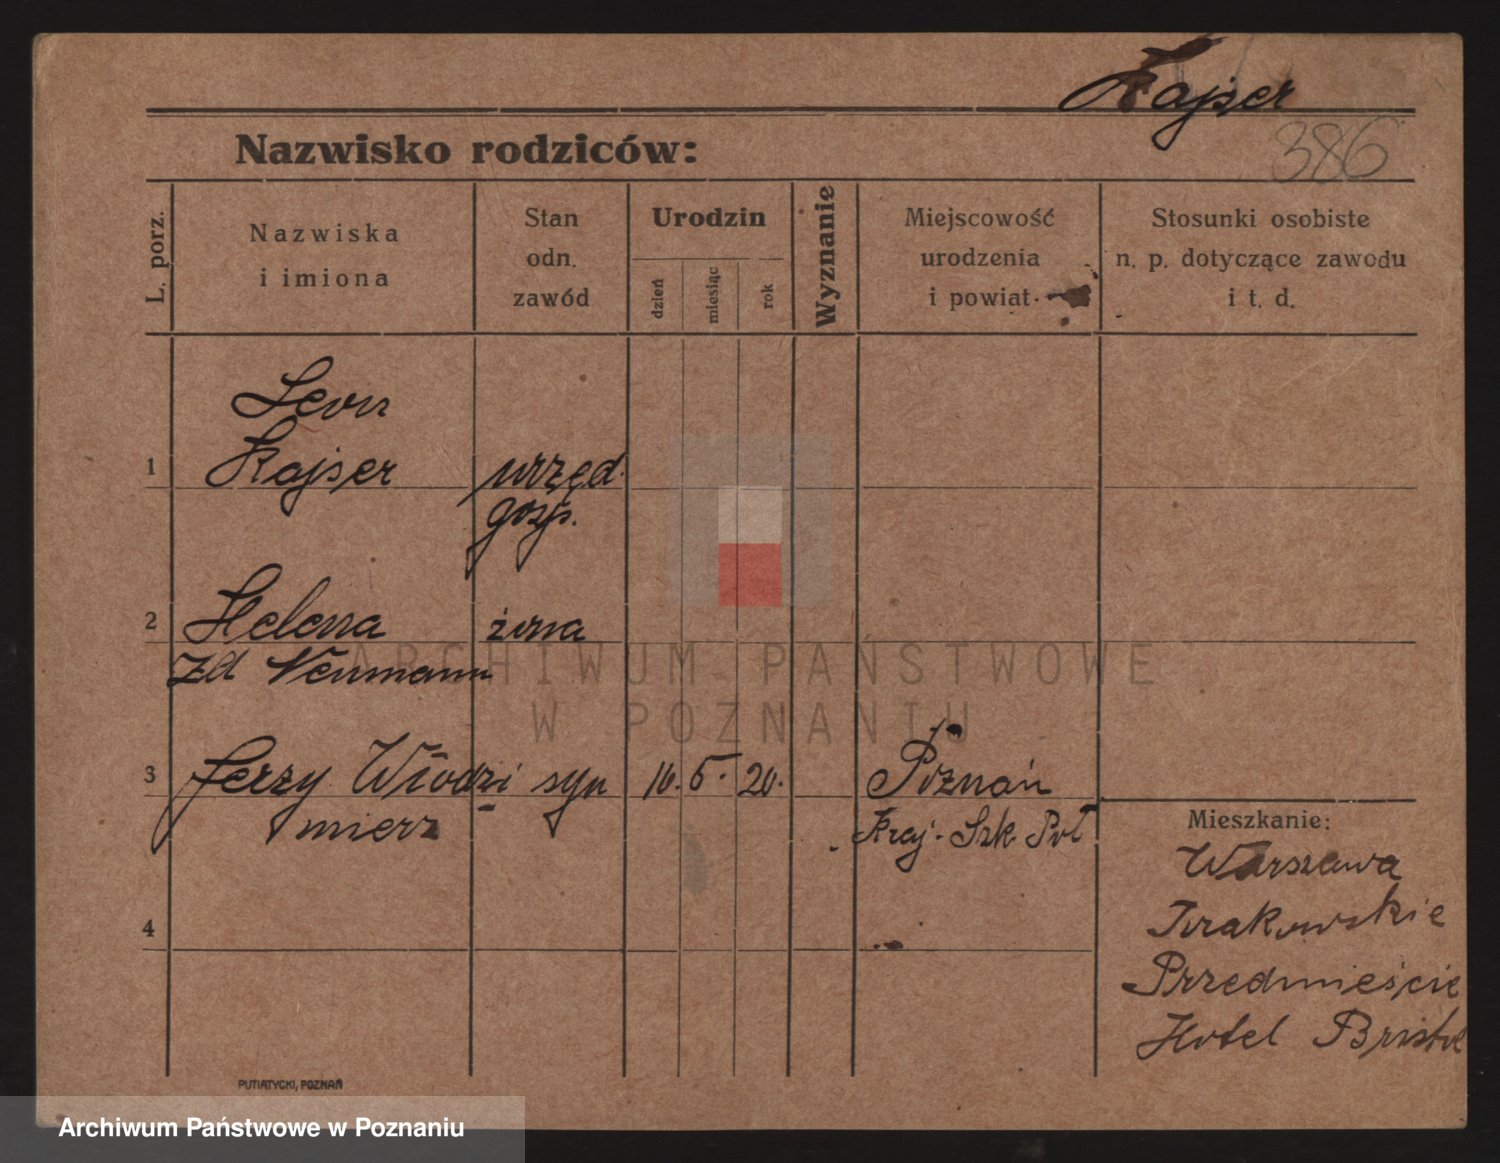 Kajser
Nazwisko rodziców:
386
L. porz.
Nazwiska
i imiona
Stan
odn.
zawód
Urodzin
dzień
miesiąc
rok
Wyznanie
Miejscowość
urodzenia
i powiat
Stosunki osobiste
n. p. dotyczące zawodu
i t. d.
Leon
1 Kajser urzęd.
gosp.
2 Helena żona
zd Neumann
ARCHIWUM PAŃSTWOWE
W POZNANIU
3 Jerzy Włodzi syn 16. 5. 20. Poznań
mierz Kraj. Szk. Poł
Mieszkanie:
Warszawa
4
Krakowskie
Przedmieście
Hotel Bristol
PUTIATYCKI, POZNAŃ
Archiwum Państwowe w Poznaniu